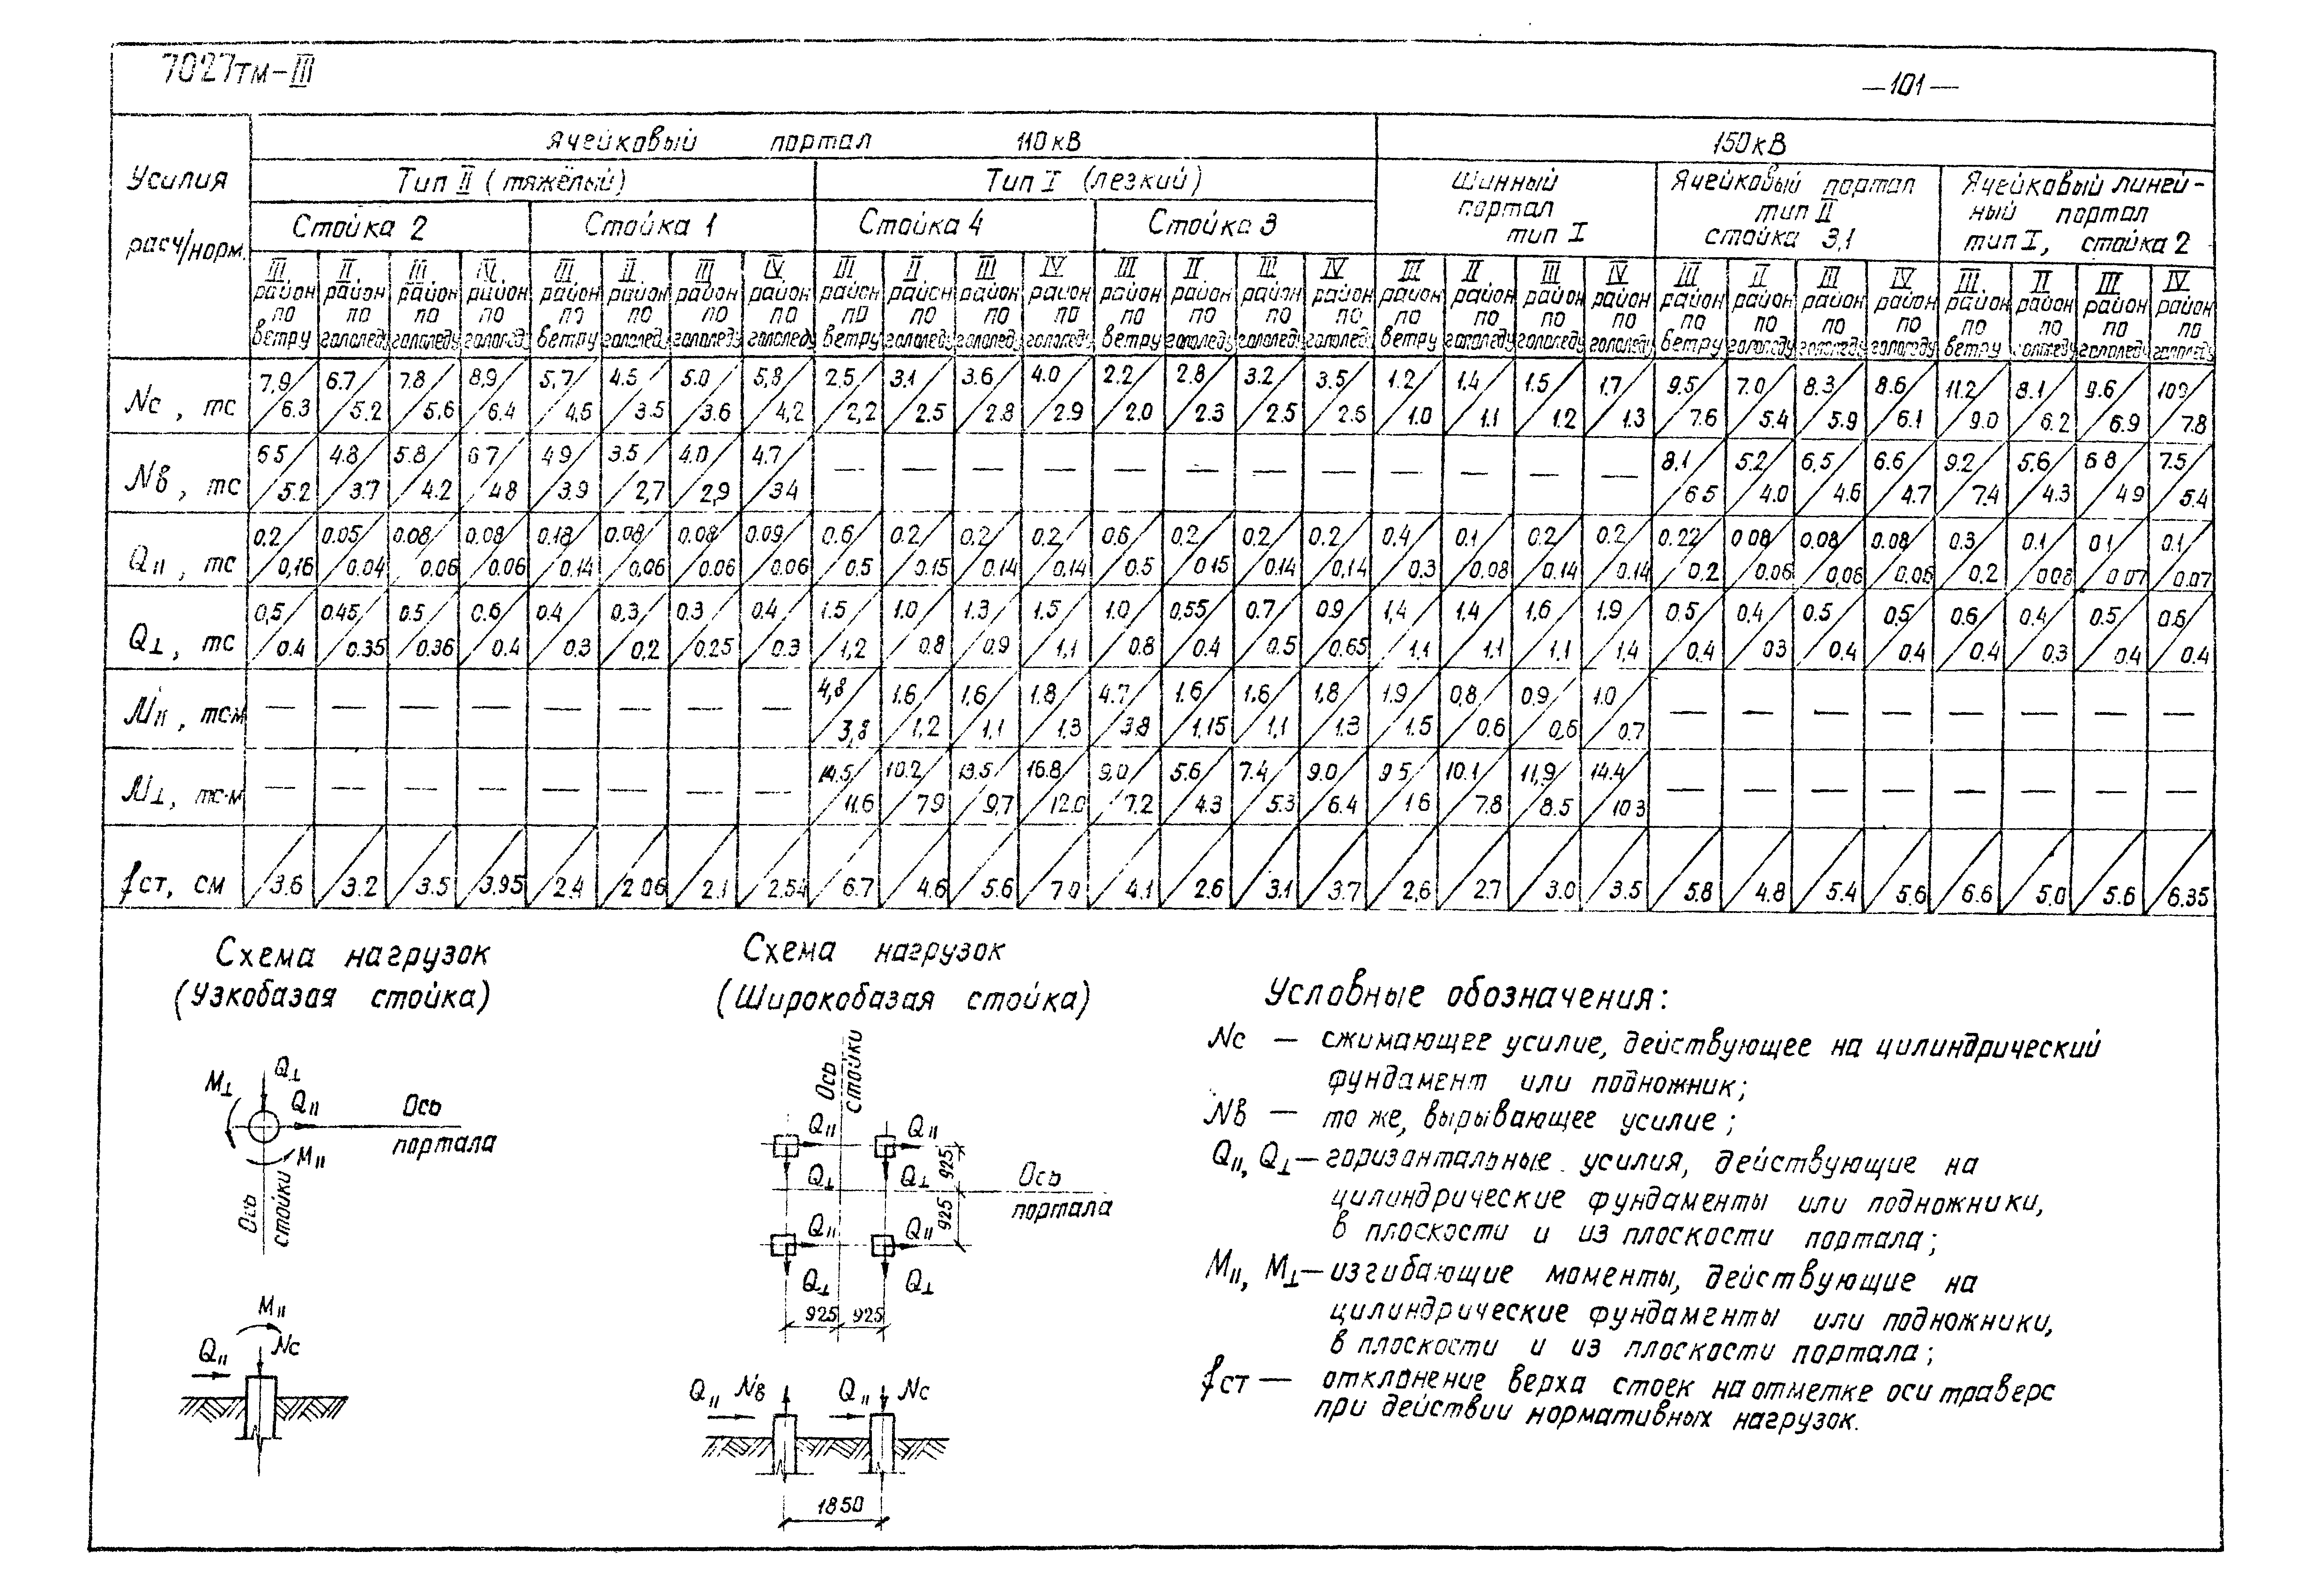 7027тм-III
—101—
Усилия
расч/норм.
Ячейковый портал 110кВ
150кВ
Тип II (тяжёлый)
Тип I (легкий)
Шинный
портал
тип I
Ячейковый портал
тип II
стойка 3,1
Ячейковый линей-
ный портал
тип I, стойка 2
Стойка 2
Стойка 1
Стойка 4
Стойка 3
III район по ветру II район по гололеду III район по гололеду IV район по гололеду III район по ветру II район по гололеду III район по гололеду IV район по гололеду III район по ветру II район по гололеду III район по гололеду IV район по гололеду III район по ветру II район по гололеду III район по гололеду IV район по гололеду III район по ветру II район по гололеду III район по гололеду IV район по гололеду III район по ветру II район по гололеду III район по гололеду IV район по гололеду III район по ветру II район по гололеду III район по гололеду IV район по гололеду
Nс, тс 7,9/6.3 6.7/5.2 7.8/5.6 8,9/6.4 5,7/4,5 4.5/3.5 5.0/3.6 5,8/4,2 2.5/2,2 3.1/2.5 3.6/2.8 4.0/2.9 2.2/2.0 2.8/2.3 3.2/2.5 3.5/2.6 1.2/1.0 1.4/1.1 1.5/1.2 1.7/1.3 9.5/7.6 7.0/5.4 8.3/5.9 8.6/6.1 11.2/9.0 8.1/6.2 9.6/6.9 109/7.8
Nв, тс 6 5/5.2 4.8/3.7 5.8/4.2 6 7/4 8 4 9/3.9 3.5/2,7 4.0/2,9 4.7/3 4 — — — — — — — — — — — — 8,1/6 5 5.2/4.0 6,5/4.6 6.6/4.7 9.2/7.4 5.6/4.3 6 8/4 9 7.5/5.4
Q॥, тс 0.2/0,16 0.05/0.04 0.08/0.06 0.08/0.06 0.18/0.14 0.08/0,06 0.08/0.06 0.09/0.06 0.6/0.5 0.2/0.15 0.2/0.14 0.2/0.14 0.6/0.5 0.2/0 15 0.2/0.14 0.2/0,14 0.4/0.3 0.1/0.08 0.2/0.14 0.2/0.14 0.22/0.2 0 08/0.06 0.08/0,06 0.08/0.06 0.3/0.2 0.1/0 08 0 1/0 07 0.1/0.07
Q⊥, тс 0,5/0.4 0.45/0.35 0.5/0.36 0.6/0.4 0.4/0.3 0.3/0,2 0.3/0.25 0.4/0.3 1.5/1,2 1.0/0.8 1.3/0.9 1.5/1,1 1.0/0.8 0,55/0.4 0.7/0.5 0.9/0.65 1,4/1,1 1.4/1.1 1.6/1,1 1.9/1,4 0.5/0.4 0,4/0 3 0.5/0.4 0.5/0.4 0.6/0.4 0.4/0,3 0.5/0.4 0.6/0.4
М॥, тс·м — — — — — — — — 4,8/3,8 1.6/1,2 1.6/1,1 1.8/1.3 4.7/3.8 1.6/1,15 1.6/1,1 1,8/1.3 1.9/1.5 0,8/0.6 0,9/0,6 1.0/0.7 — — — — — — — —
М⊥, тс·м — — — — — — — — 14.5/11.6 10.2/7.9 13.5/9,7 16.8/12.0 9,0/7.2 5.6/4.3 7.4/5.3 9.0/6.4 9 5/1 6 10.1/7.8 11,9/8.5 14.4/10 3 — — — — — — — —
fст, см 3.6 3.2 3.5 3.95 2.4 2 06 2.1 2.54 6.7 4.6 5.6 7 0 4.1 2.6 3.1 3.7 2,6 2.7 3.0 3.5 5.8 4.8 5.4 5.6 6.6 5.0 5.6 6.35
Схема нагрузок
(Узкобазая стойка)
М⊥ Q⊥
Q॥ Ось
портала
М॥
Ось
стойки
М॥
Q॥ Nс
Схема нагрузок
(Широкобазая стойка)
Ось
стойки
Q॥ Q॥
925
Q⊥ Q⊥ Ось
портала
925
Q॥ Q॥
Q⊥ Q⊥
925 925
Q॥ Nв Q॥ Nс
1850
Условные обозначения:
Nс — сжимающее усилие, действующее на цилиндрический
фундамент или подножник;
Nв — то же, вырывающее усилие;
Q॥, Q⊥ — горизонтальные усилия, действующие на
цилиндрические фундаменты или подножники,
в плоскости и из плоскости портала;
М॥, М⊥ — изгибающие моменты, действующие на
цилиндрические фундаменты или подножники,
в плоскости и из плоскости портала;
fст — отклонение верха стоек на отметке оси траверс
при действии нормативных нагрузок.